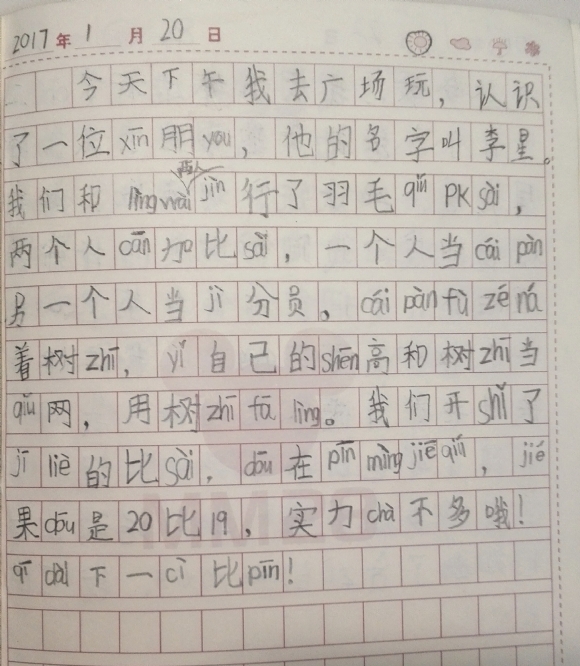 2017年1月20日
今天下午我去广场玩，认识
了一位xīn朋yǒu，他的名字叫李星。
两人
我们和lìngwài jìn行了羽毛qiú PK sài，
两个人cān加比sài，一个人当cái pàn
另一个人当jì分员，cái pàn fù zé ná
着树zhī，yǐ自己的shēn高和树zhī当
qiú网，用树zhī fā lìng。我们开shǐ了
jī liè的比sài，dōu在pīn mìng jiē qiú，jié
果dōu是20比19，实力chà不多哦！
qī dài下一cì比pīn！